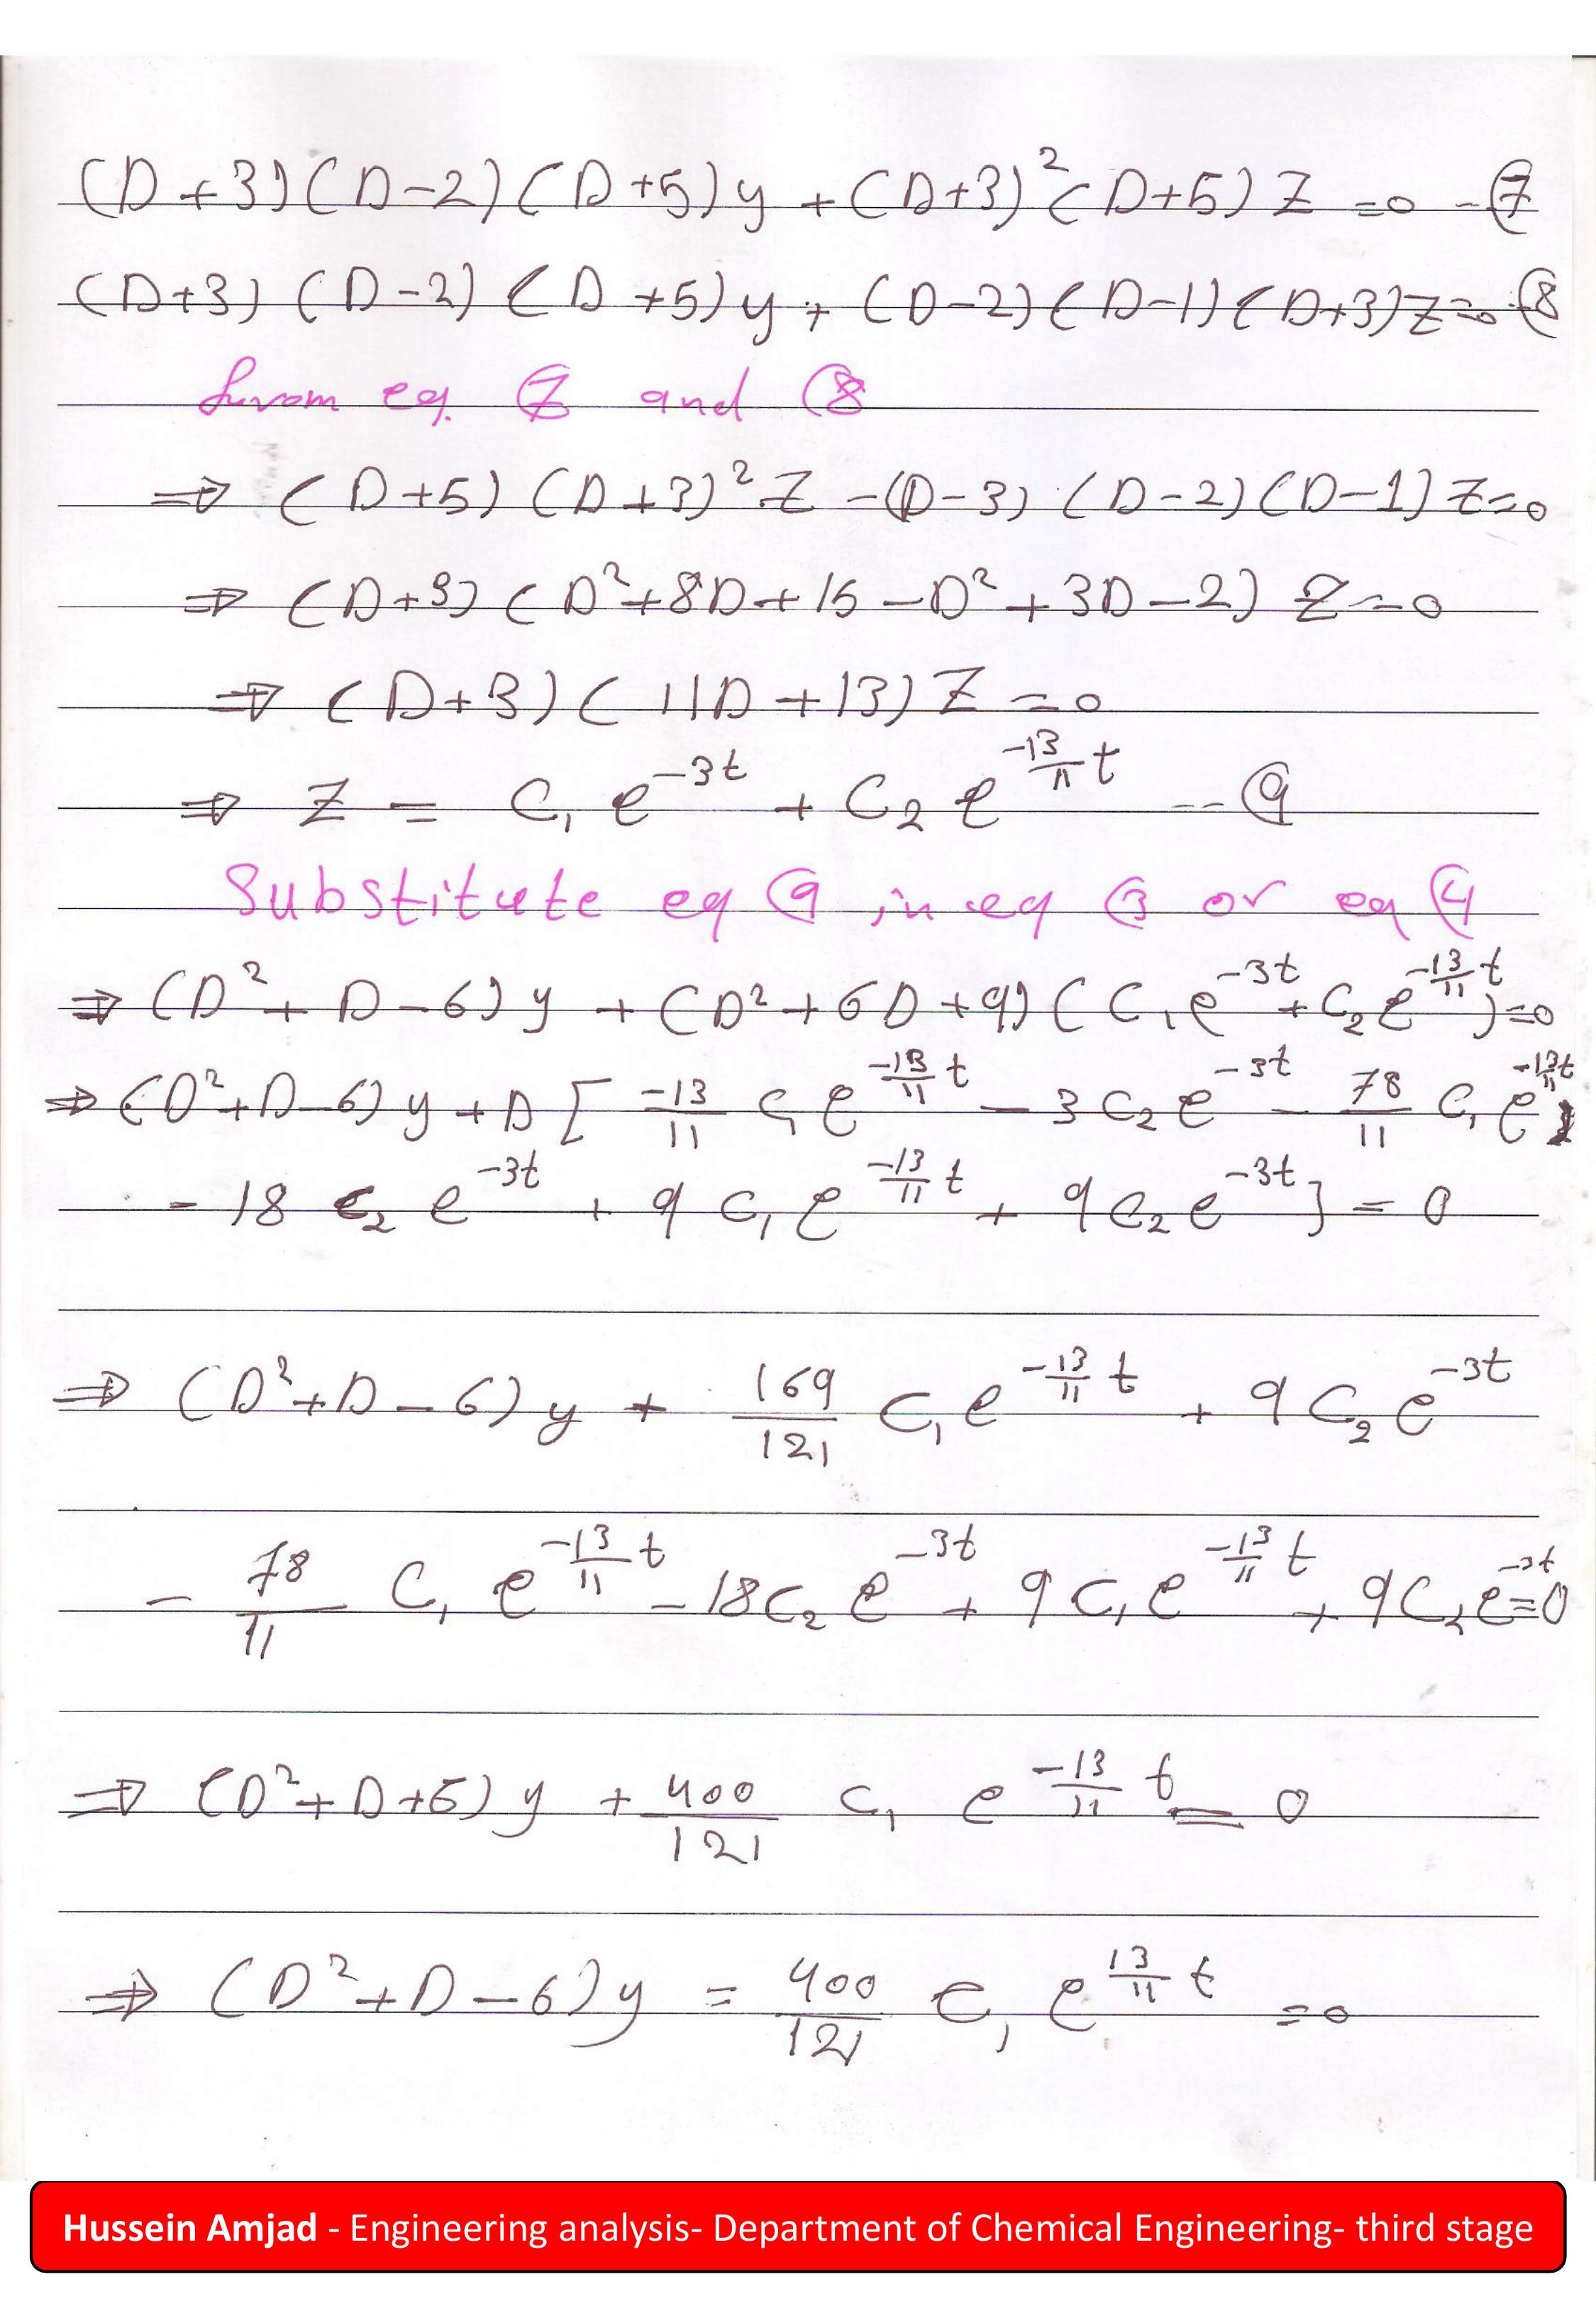 (D+3)(D-2)(D+5)y + (D+3)²(D+5)Z =0 - ⑦
(D+3)(D-2)(D+5)y + (D-2)(D-1)(D+3)Z=0 - ⑧
from eq. ⑦ and ⑧
⇒ (D+5)(D+3)²Z -(D-3)(D-2)(D-1)Z=0
⇒ (D+3)(D²+8D+15-D²+3D-2)Z=0
⇒ (D+3)(11D+13)Z=0
⇒ Z = C₁ e^{-3t} + C₂ e^{-13/11 t} -- ⑨
Substitute eq ⑨ in eq ③ or eq ④
⇒ (D²+D-6)y + (D²+6D+9)(C₁e^{-3t}+C₂e^{-13/11 t})=0
⇒ (D²+D-6)y+D[-13/11 C₁e^{-13/11 t} - 3C₂e^{-3t} - 78/11 C₁e^{-13/11 t}
-18 C₂ e^{-3t} + 9 C₁e^{-13/11 t} + 9C₂e^{-3t}] = 0
⇒ (D²+D-6)y + 169/121 C₁e^{-13/11 t} + 9C₂e^{-3t}
- 78/11 C₁ e^{-13/11 t} -18C₂e^{-3t} + 9C₁e^{-13/11 t} + 9C₂e^{-3t}=0
⇒ (D²+D+6)y + 400/121 C₁ e^{-13/11 t} = 0
⇒ (D²+D-6)y = 400/121 C₁ e^{13/11 t} =0
Hussein Amjad - Engineering analysis- Department of Chemical Engineering- third stage